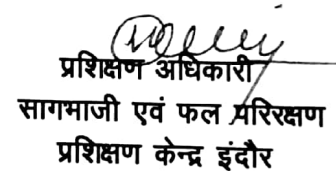 प्रशिक्षण अधिकारी
सागभाजी एवं फल परिरक्षण
प्रशिक्षण केन्द्र इंदौर